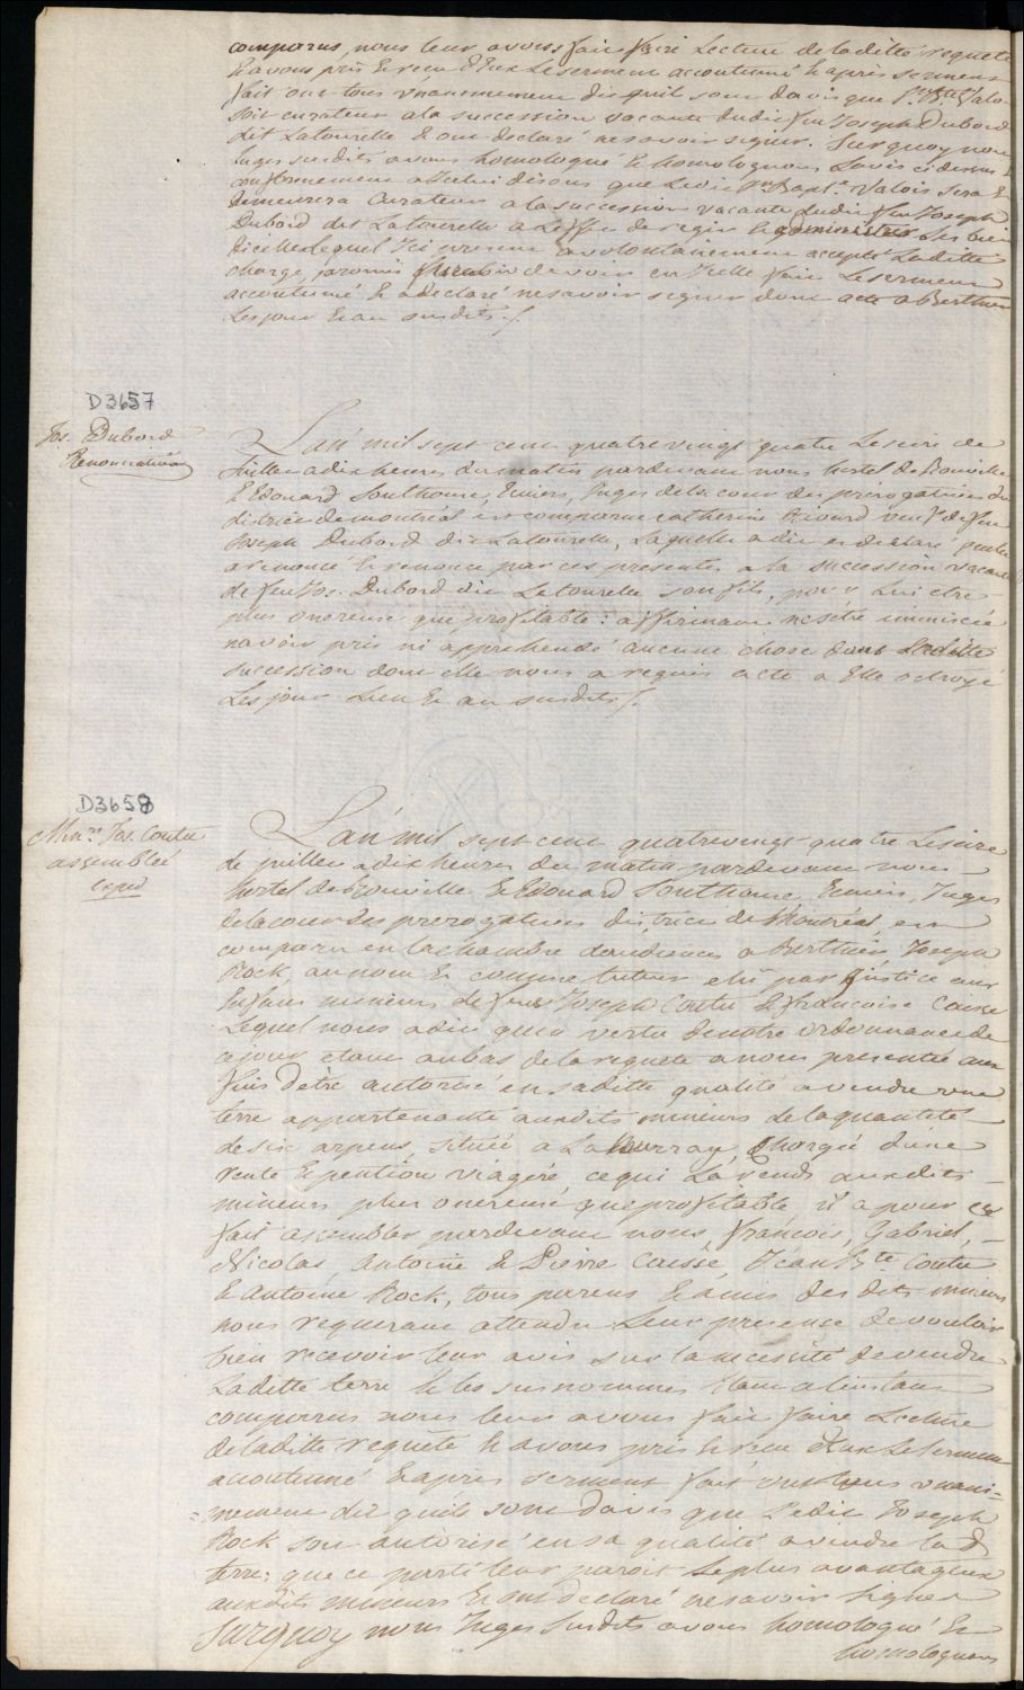 comparus, nous leur avons fait faire Lecture de laditte requete
& avons pris & recu d'Eux Le serment accoutumé & après serment
fait ont tous unanimement dit quil sont davis que Jn Bte Valois
soit curateur a la succession vacante dudit feu Joseph Dubord
dit Latourelle & ont declaré ne savoir signer. Surquoy nous
Juges susdits avons homologué & homologuons Lavis cidessus &
conformement a Icelui disons que Ledit Jn Bapte Valois sera &
demeurera Curateur a la succession vacante dudit feu Joseph
Dubord dit Latourelle a Leffet de regir & administrer Les biens
dicelle Lequel Ici present a volontairement accepté Laditte
charge, promis faire devoir en Icelle fait Le serment
accoutumé & a declaré ne savoir signer dont acte a Berthier
Les jour & an susdits ./.
D3657
Jos. Dubord
Renonciation
Lan mil sept cent quatre vingt quatre Le seire de
Juillet a dix heures du matin pardevant nous hertel de Rouville
& Edouard Southouse, Ecuiers, Juges de la cour des prérogatives du
district de montréal est comparue catherine Rivard veuve de feu
Joseph Dubord dit Latourelle, Laquelle a dit et declaré
a renoncé & renonce par ces presentes a la succession vacante
de feu Jos. Dubord dit Latourelle son fils, pour Lui etre
plus onereuse que profitable : affirmant ne setre immiscée
navoir pris ni apprehendé aucune chose dans Laditte
succession dont elle nous a requis acte a Elle octroyé
Les jour Lieu & an susdits ./.
D3658
Minrs Jos. Coutu
assemblée
exped
Lan mil sept cent quatrevingt quatre Le seire
de juillet a dix heures du matin pardevant nous
hertel de Rouville & Edouard Southouse, Ecuiers, Juges
de la cour des prerogatives district de Montréal, est
comparu en la chambre daudiences a Berthier, Joseph
Rock, au nom & comme tuteur elu par Justice aux
Enfans mineurs de feu Joseph Coutu & francoise Caisse
Lequel nous a dit quen vertu de notre ordonnance de
ce jour etant au bas de la requete a nous presentée aux
fins d'etre autorisé en saditte qualité a vendre une
terre appartenante auxdits mineurs de la quantité
de six arpens, située a La Nurray, Chargée d'une
rente & pention viagere, ce qui La rends auxdits
mineurs plus onereuse que profitable, il a pour ce
fait assembler pardevant nous, francois, Gabriel,
Nicolas, Antoine & Pierre Caisse, Jean Bte Coutu
& Antoine Rock, tous parens & amis des dits mineurs
nous requerant attendu Leur presence de vouloir
bien recevoir leur avis sur la necessité de vendre
Laditte terre & les susnommés etant a linstant
comparus nous leur avons fait faire Lecture
de laditte requete & avons pris & recu d'Eux Le serment
accoutumé & après serment fait ont tous unani-
=mement dit quils sont davis que Ledit Joseph
Rock soit autorisé en sa qualité a vendre lad
terre : que ce parti leur paroit Le plus avantageux
auxdits mineurs & ont declaré ne savoir signer
Surquoy nous Juges susdits avons homologué &
homologuons